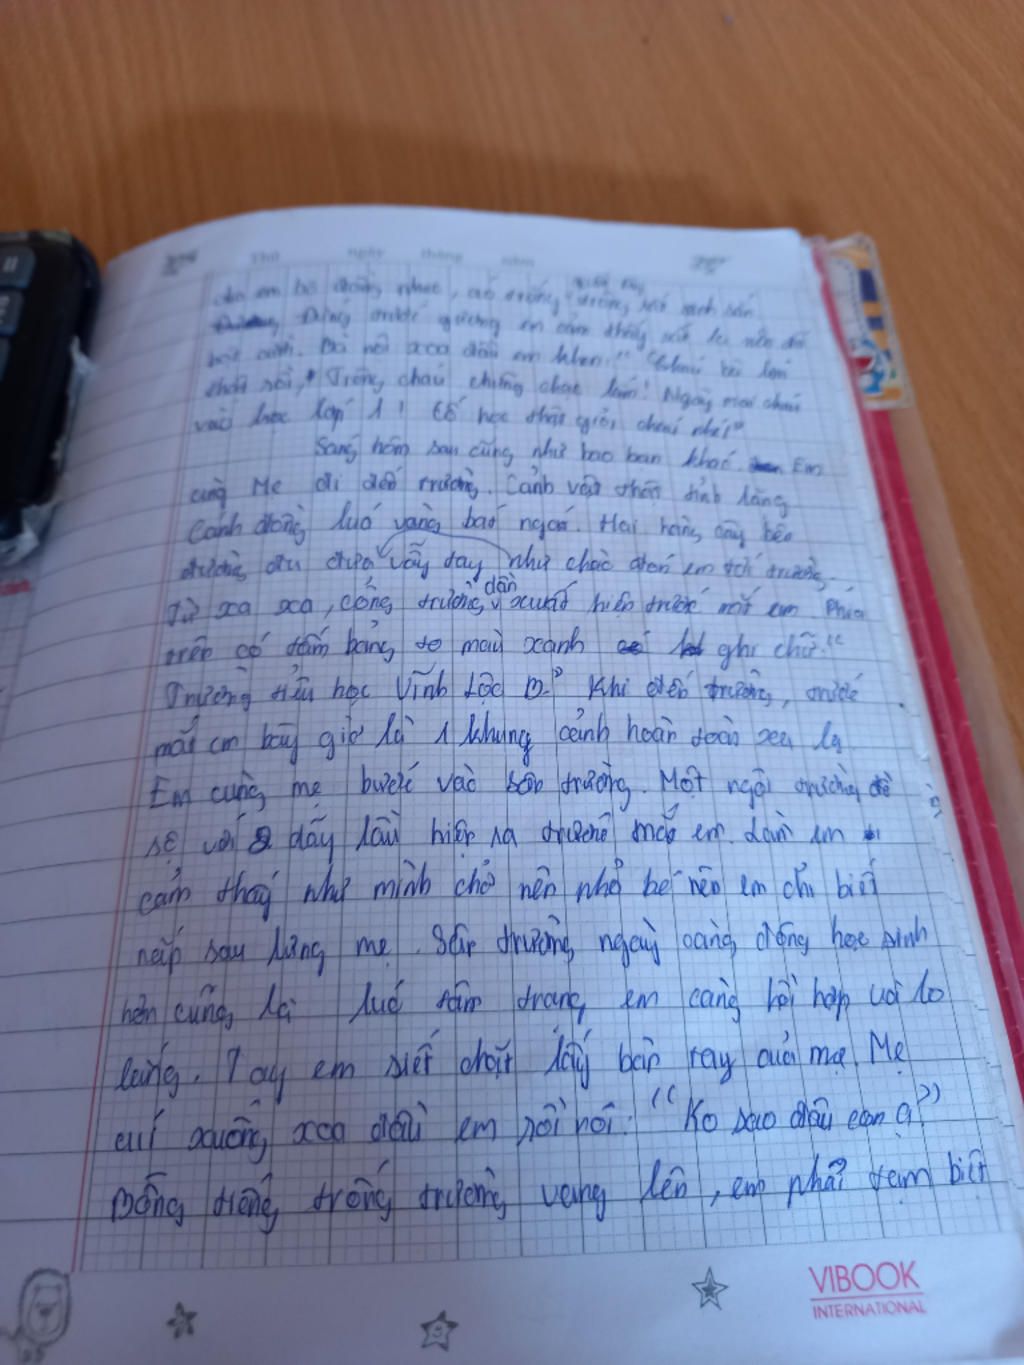 Thứ ngày tháng năm
cho em bộ đồng phục, áo trắng
Đứng trước gương em cảm thấy
Bà nội xoa đầu em khen: "Cháu bà lớn
thật rồi, Trông cháu chững chạc lắm! Ngày mai cháu
vào học lớp 1! Cố học thật giỏi cháu nhé!"
Sáng hôm sau cũng như bao bạn khác. Em
cùng Mẹ đi đến trường. Cảnh vật thật tĩnh lặng
Cánh đồng lúa vàng bát ngát. Hai hàng cây bên
đường đu đưa vẫy tay như chào đón em tới trường.
Từ xa xa, cổng trường dần xuất hiện trước mắt em. Phía
trên có tấm bảng to màu xanh ghi chữ: "
Trường tiểu học Vĩnh Lộc B" Khi đến trường, trước
mắt em bây giờ là 1 khung cảnh hoàn toàn xa lạ
Em cùng mẹ bước vào sân trường. Một ngôi trường đồ
sộ với dãy lầu hiện ra trước mắt em. Làm em
cảm thấy như mình trở nên nhỏ bé nên em chỉ biết
nấp sau lưng mẹ. Sân trường ngày càng đông học sinh
hơn cũng là lúc tâm trạng em càng hồi hộp và lo
lắng. Tay em siết chặt lấy bàn tay của mẹ. Mẹ
cúi xuống xoa đầu em rồi nói: "Ko sao đâu con ạ?"
Bỗng tiếng trống trường vang lên, em phải tạm biệt
VIBOOK
INTERNATIONAL